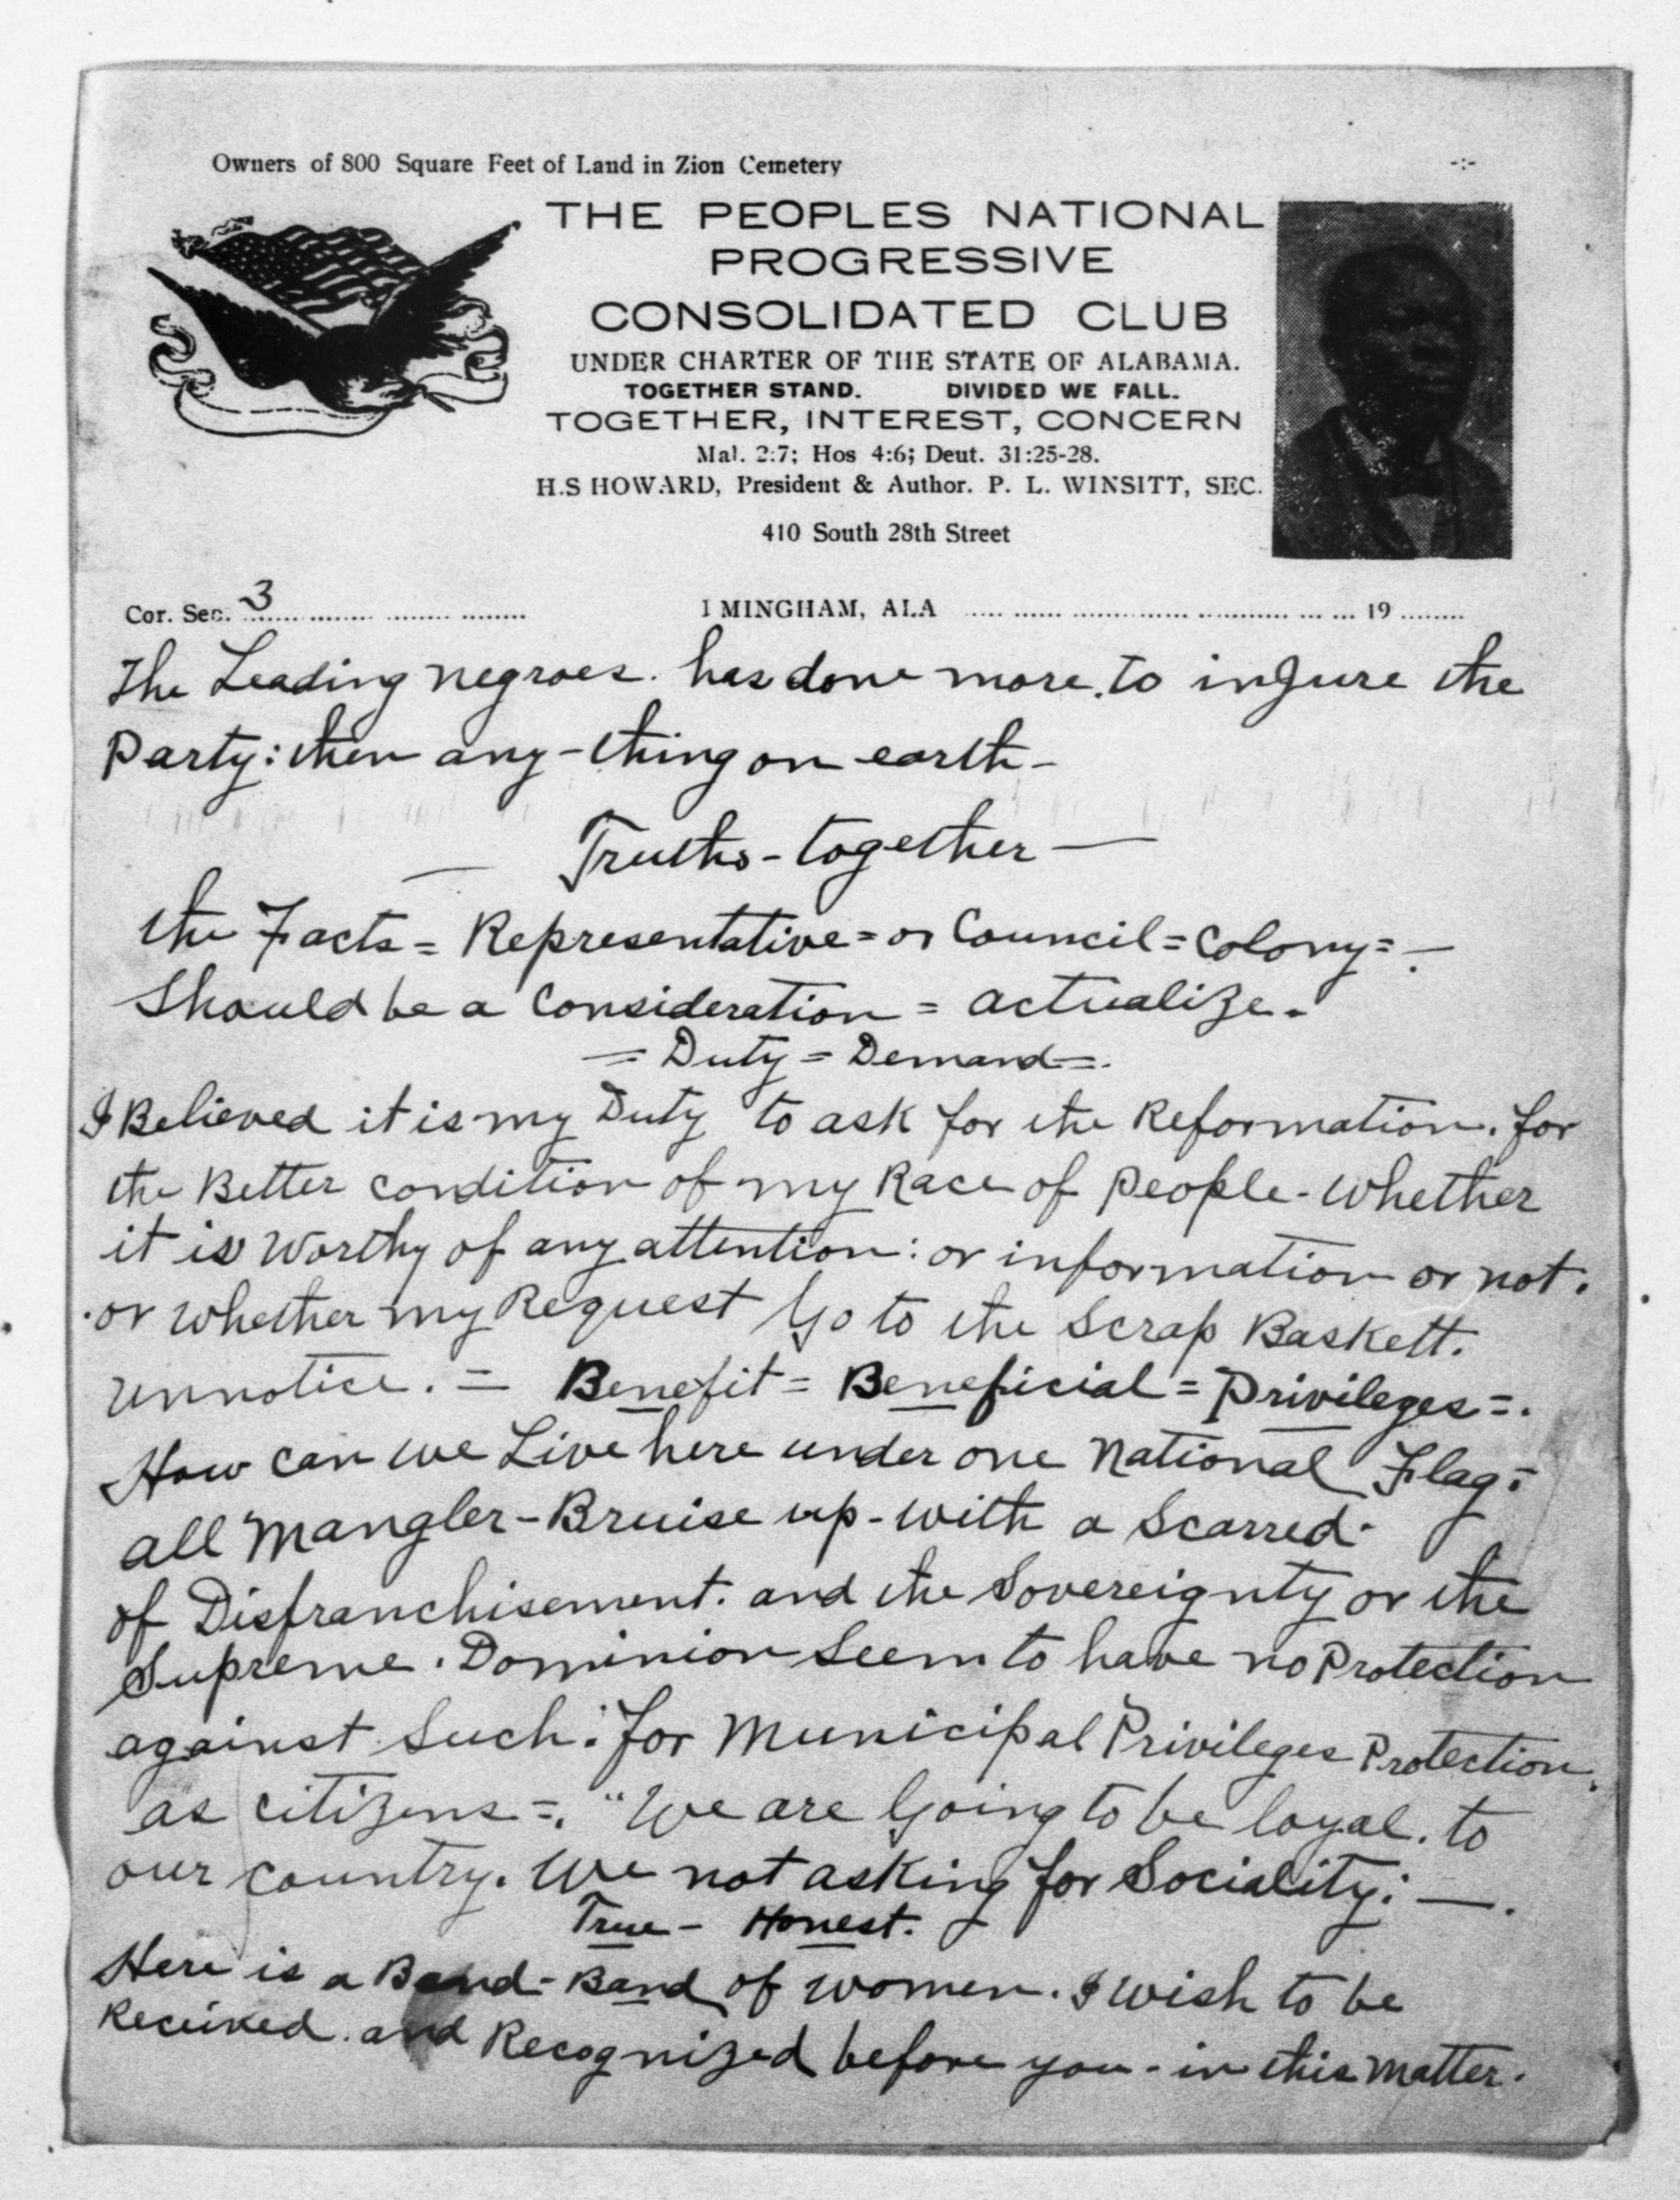 Owners of 800 Square Feet of Land in Zion Cemetery
-:-
THE PEOPLES NATIONAL
PROGRESSIVE
CONSOLIDATED CLUB
UNDER CHARTER OF THE STATE OF ALABAMA.
TOGETHER STAND. DIVIDED WE FALL.
TOGETHER, INTEREST, CONCERN
Mal. 2:7; Hos 4:6; Deut. 31:25-28.
H.S HOWARD, President & Author. P. L. WINSITT, SEC.
410 South 28th Street
Cor. Sec. 3 I MINGHAM, ALA 19
The Leading negroes. has done more. to inJure the
Party: then any-thing on earth-
— Truths-together —
the Facts = Representative = or Council = Colony = -
Should be a Consideration = actualize.
= Duty = Demand =.
I Believed it is my Duty to ask for the Reformation. for
the Better condition of my Race of people - whether
it is worthy of any attention: or information or not.
.or whether my Request Go to the Scrap Baskett.
unnotice. = Benefit = Beneficial = Privileges =.
How can we Live here under one National Flag:
all Mangler - Bruise up - with a Scarred -
of Disfranchisement. and the Sovereignty or the
Supreme. Dominion Seem to have no Protection
against Such: for Municipal Privileges Protection.
as citizens =. "We are Going to be loyal. to
our country. We not asking for Sociality: —.
True - Honest.
Here is a Band - Band of women. I wish to be
Received. and Recognized before you - in this matter.